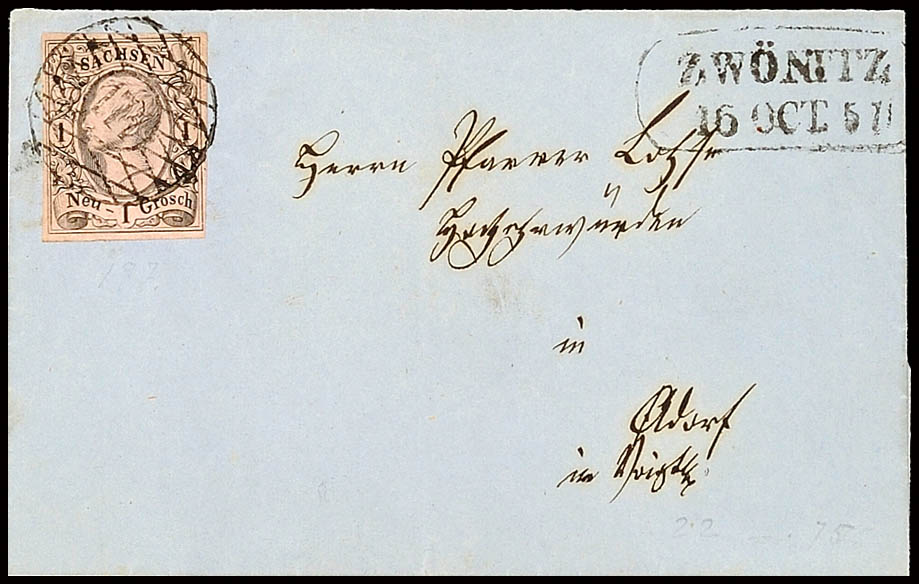 SACHSEN
1 1
Neu - 1 Grosch
ZWÖNITZ
16 OCT. 51
Herrn Pfarrer
Hochehrwürden
in
Adorf
im Voigtl.
187
22